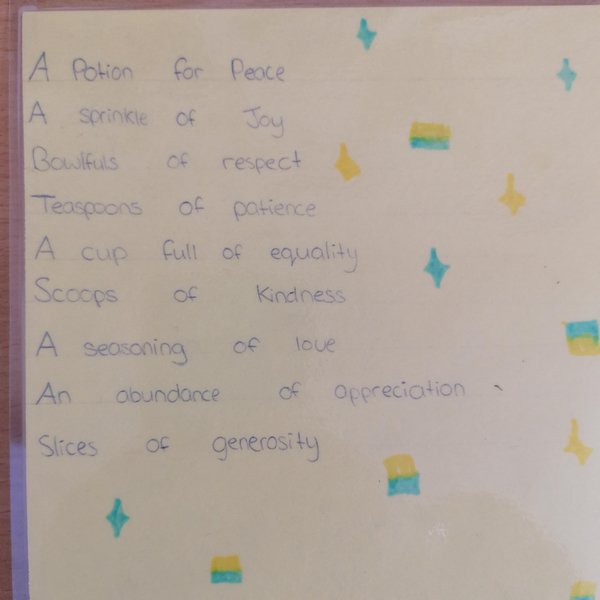 A Potion for Peace
A sprinkle of Joy
Bowlfuls of respect
Teaspoons of patience
A cup full of equality
Scoops of Kindness
A seasoning of love
An abundance of appreciation
Slices of generosity